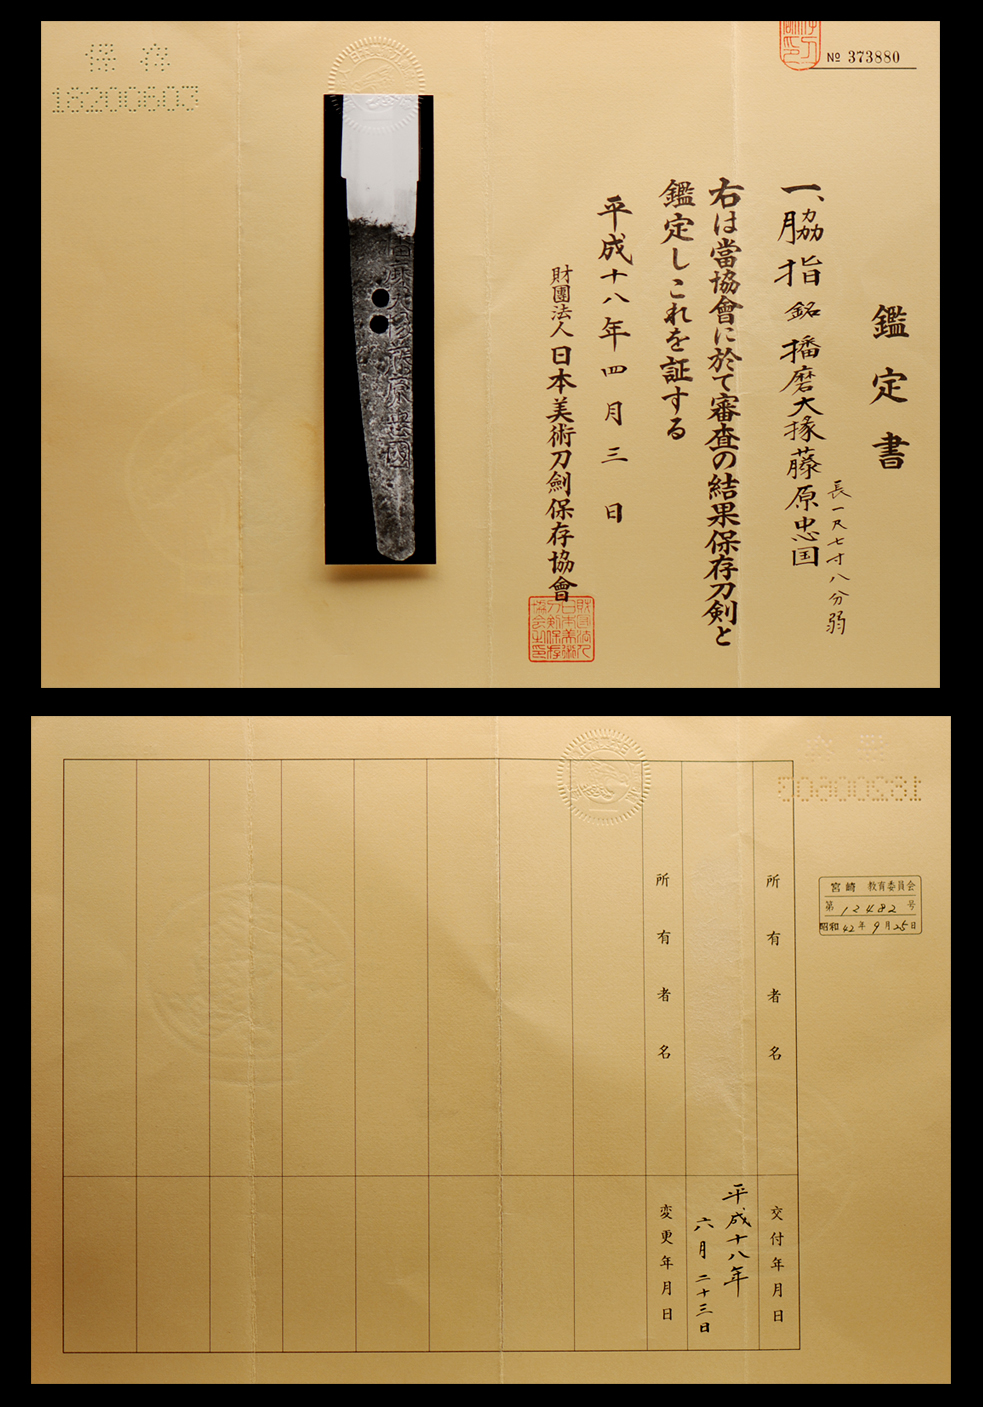 保存
18200603
№ 373880
鑑定書
一、脇指 銘 播磨大掾藤原忠国
長一尺七寸八分弱
右は當協會に於て審査の結果保存刀剣と
鑑定しこれを証する
平成十八年四月三日
財團法人日本美術刀劍保存協會
財団法人日本美術刀剣保存協会之印
播磨大掾藤原忠國
宮崎 教育委員会
第12482号
昭和42年9月25日
所有者名
交付年月日
平成十八年
六月二十三日
所有者名
変更年月日